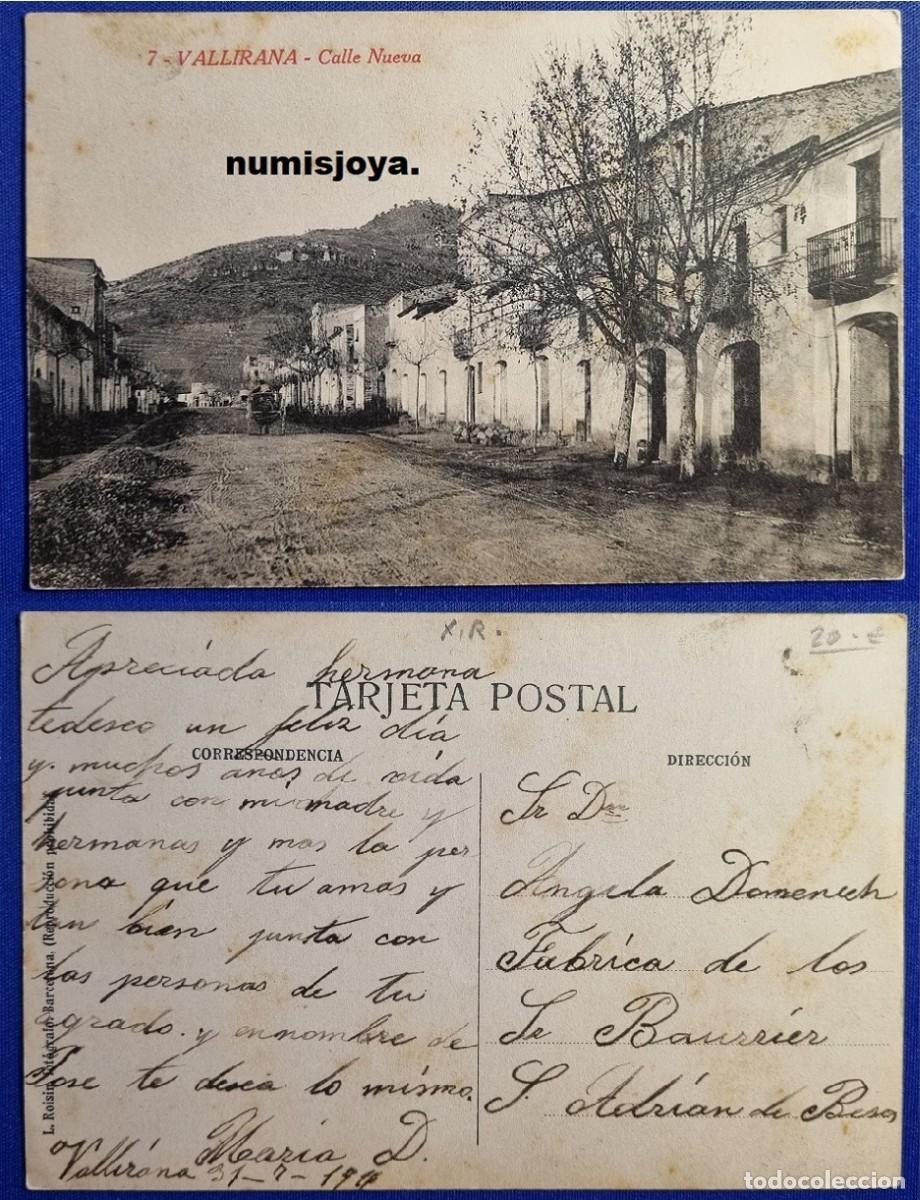 7 - VALLIRANA - Calle Nueva
numisjoya.
X.R.
20.- €
Apreciada hermana
TARJETA POSTAL
tedeseo un feliz día
CORRESPONDENCIA
y muchos anos de vida
junta con mi madre y
hermanas y mas la per
sona que tu amas y
tan bien junta con
las personas de tu
agrado. y ennombre de
Jose te desea lo mismo.
Maria D.
Vallirána 31-7-191
L. Roisin, fotógrafo.-Barcelona. (Reproducción prohibida)
DIRECCIÓN
Sr Dna
Angela Domenech
Fabrica de los
Sr Baurrier
S. Adrián de Besos
todocoleccion